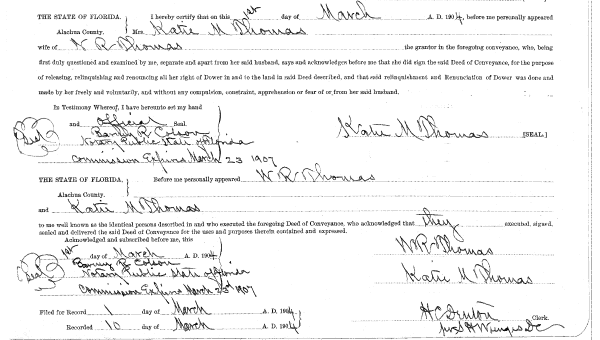 THE STATE OF FLORIDA. I hereby certify that on this 1st day of March A. D. 1904, before me personally appeared
Alachua County. Mrs Katie M Thomas
wife of W R Thomas the grantor in the foregoing conveyance, who, being
first duly questioned and examined by me, separate and apart from her said husband, says and acknowledges before me that she did sign the said Deed of Conveyance, for the purpose
of releasing, relinquishing and renouncing all her right of Dower in and to the land in said Deed described, and that said relinquishment and Renunciation of Dower was done and
made by her freely and voluntarily, and without any compulsion, constraint, apprehension or fear of or from her said husband.
In Testimony Whereof, I have hereunto set my hand
and official Seal.
Seal Colson Katie M Thomas [SEAL.]
Notary Public State of Florida
Commission Expires March 23 1907
THE STATE OF FLORIDA. Before me personally appeared W R Thomas
Alachua County.
and Katie M Thomas
to me well known as the identical persons described in and who executed the foregoing Deed of Conveyance, who acknowledged that they executed, signed,
sealed and delivered the said Deed of Conveyance for the uses and purposes therein contained and expressed.
Acknowledged and subscribed before me, this
1st day of March A. D. 1904 W R Thomas
Seal Colson
Notary Public State of Florida Katie M Thomas
Commission Expires March 23d 1907
Filed for Record 1 day of March A. D. 1904 H C Denton Clerk.
Recorded 10 day of March A. D. 1904 DC